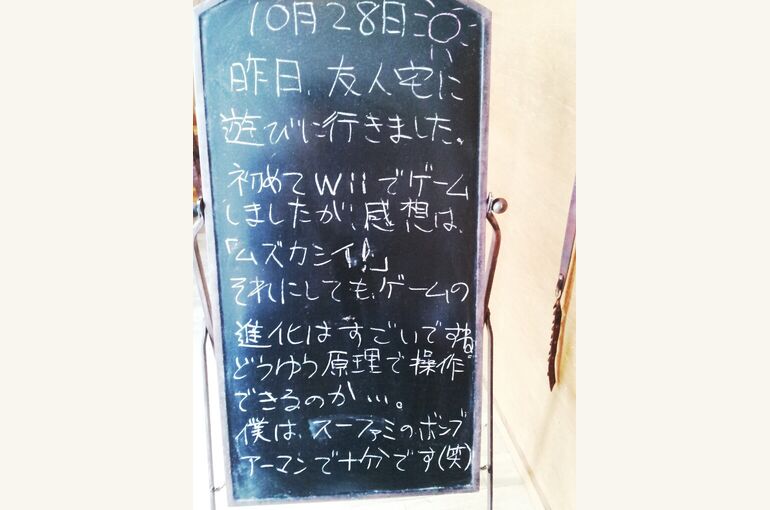 10月28日
昨日、友人宅に
遊びに行きました。
初めてWiiでゲーム
しましたが、感想は、
「ムズカシイ!」
それにしても、ゲームの
進化はすごいですね。
どうゆう原理で操作
できるのか…。
僕は、スーファミのボンブ
アーマンで十分です(笑)